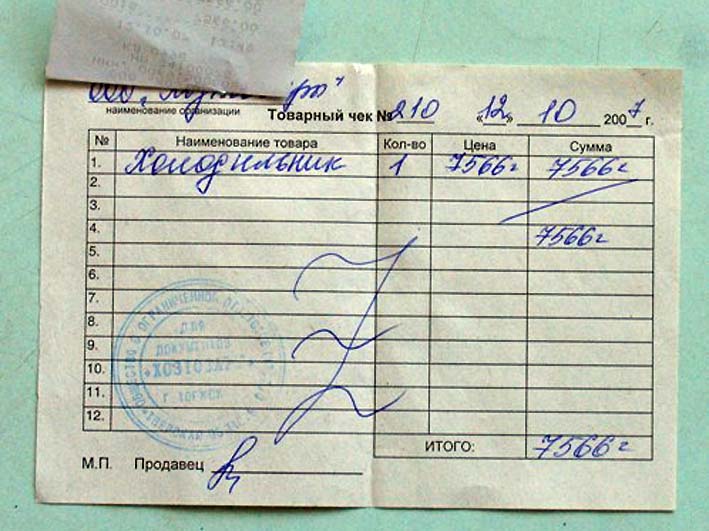 ООО
наименование организации
Товарный чек № 210 «12» 10 2007 г.
№ Наименование товара Кол-во Цена Сумма
1. Холодильник 1 7566г 7566г
2.
3.
4. 7566г
5.
6.
7.
8.
9.
10.
11.
12.
ИТОГО: 7566г
М.П. Продавец
ОБЩЕСТВО С ОГРАНИЧЕННОЙ
ДЛЯ
ДОКУМЕНТОВ
Г. ТОРЖОК